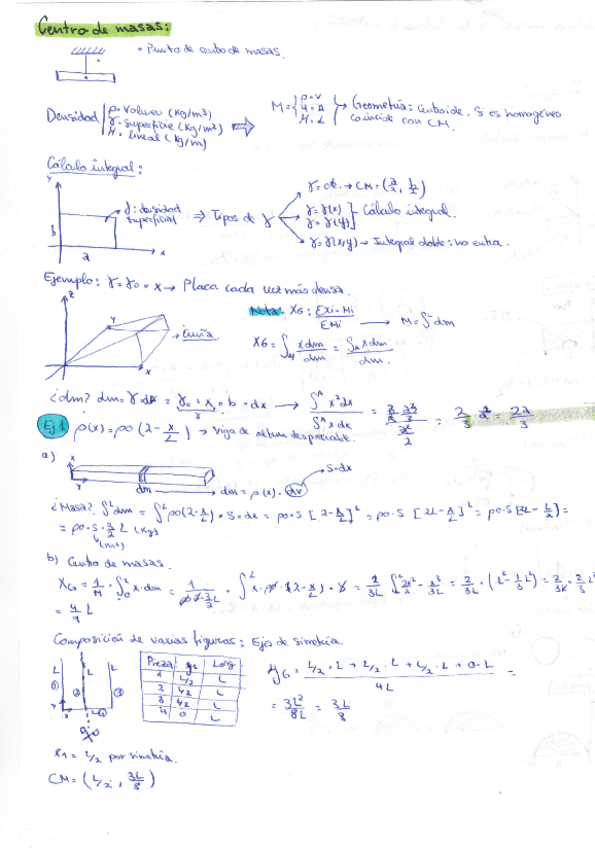 Centro de masas:
• Punto de centro de masas.
Densidad
ρ = Volumen (kg/m³)
γ = superficie (kg/m²)
lineal (kg/m)
M =
ρ·V
γ·A
Geometría: centroide. Si es homogéneo
coincide con CM.
Cálculo integral:
y
b
a
x
γ: densidad
superficial
⇒ Tipos de γ
γ = cte. → CM = (a/2, b/2)
γ = γ(x)
γ = γ(y)
Cálculo integral.
γ = γ(x,y) → Integral doble: no entra.
Ejemplo: γ = γ0 · x → Placa cada vez más densa.
z
y
x
→ Cuña
Nota: XG = Σxi·Mi / ΣMi → M = ∫ᴸ dm
XG = ∫M x dm / dm = ∫M x dm / dm.
¿dm? dm = γ·dA = γ0 · x · b · dx → ∫ᴬ x² dx / ∫ᴬ x dx = = 2/3 = 2a/3
Ej 1 ρ(x) = ρ0 (2 - x/L) → Viga de altura despreciable.
a)
x
y
dm → dm = ρ(x) · dv → S·dx
¿Masa? ∫ᴸ dm = ∫ᴸ ρ0 (2 - x/L) · S · dx = ρ0·S [2 - x/L]ᴸ = ρ0·S [2L - x/L]ᴸ = ρ0·S (2L - L/2) =
= ρ0 · S · 3/2 L (kg)
(m²)
b) Centro de masas.
XG = 1/M · ∫₀² x·dm =
= 4/9 L
Composición de varias figuras: Ejo de simetría.
L
L
L
Pieza Long
1 L/2 L
2 L/2 L
3 L/2 L
4 0 L
yG = L/2 · L + L/2 · L + L/2 · L + 0·L / 4L =
= 3L²/8L = 3L/8
= L/2 por simetría.
CM = (L/2, 3L/8)